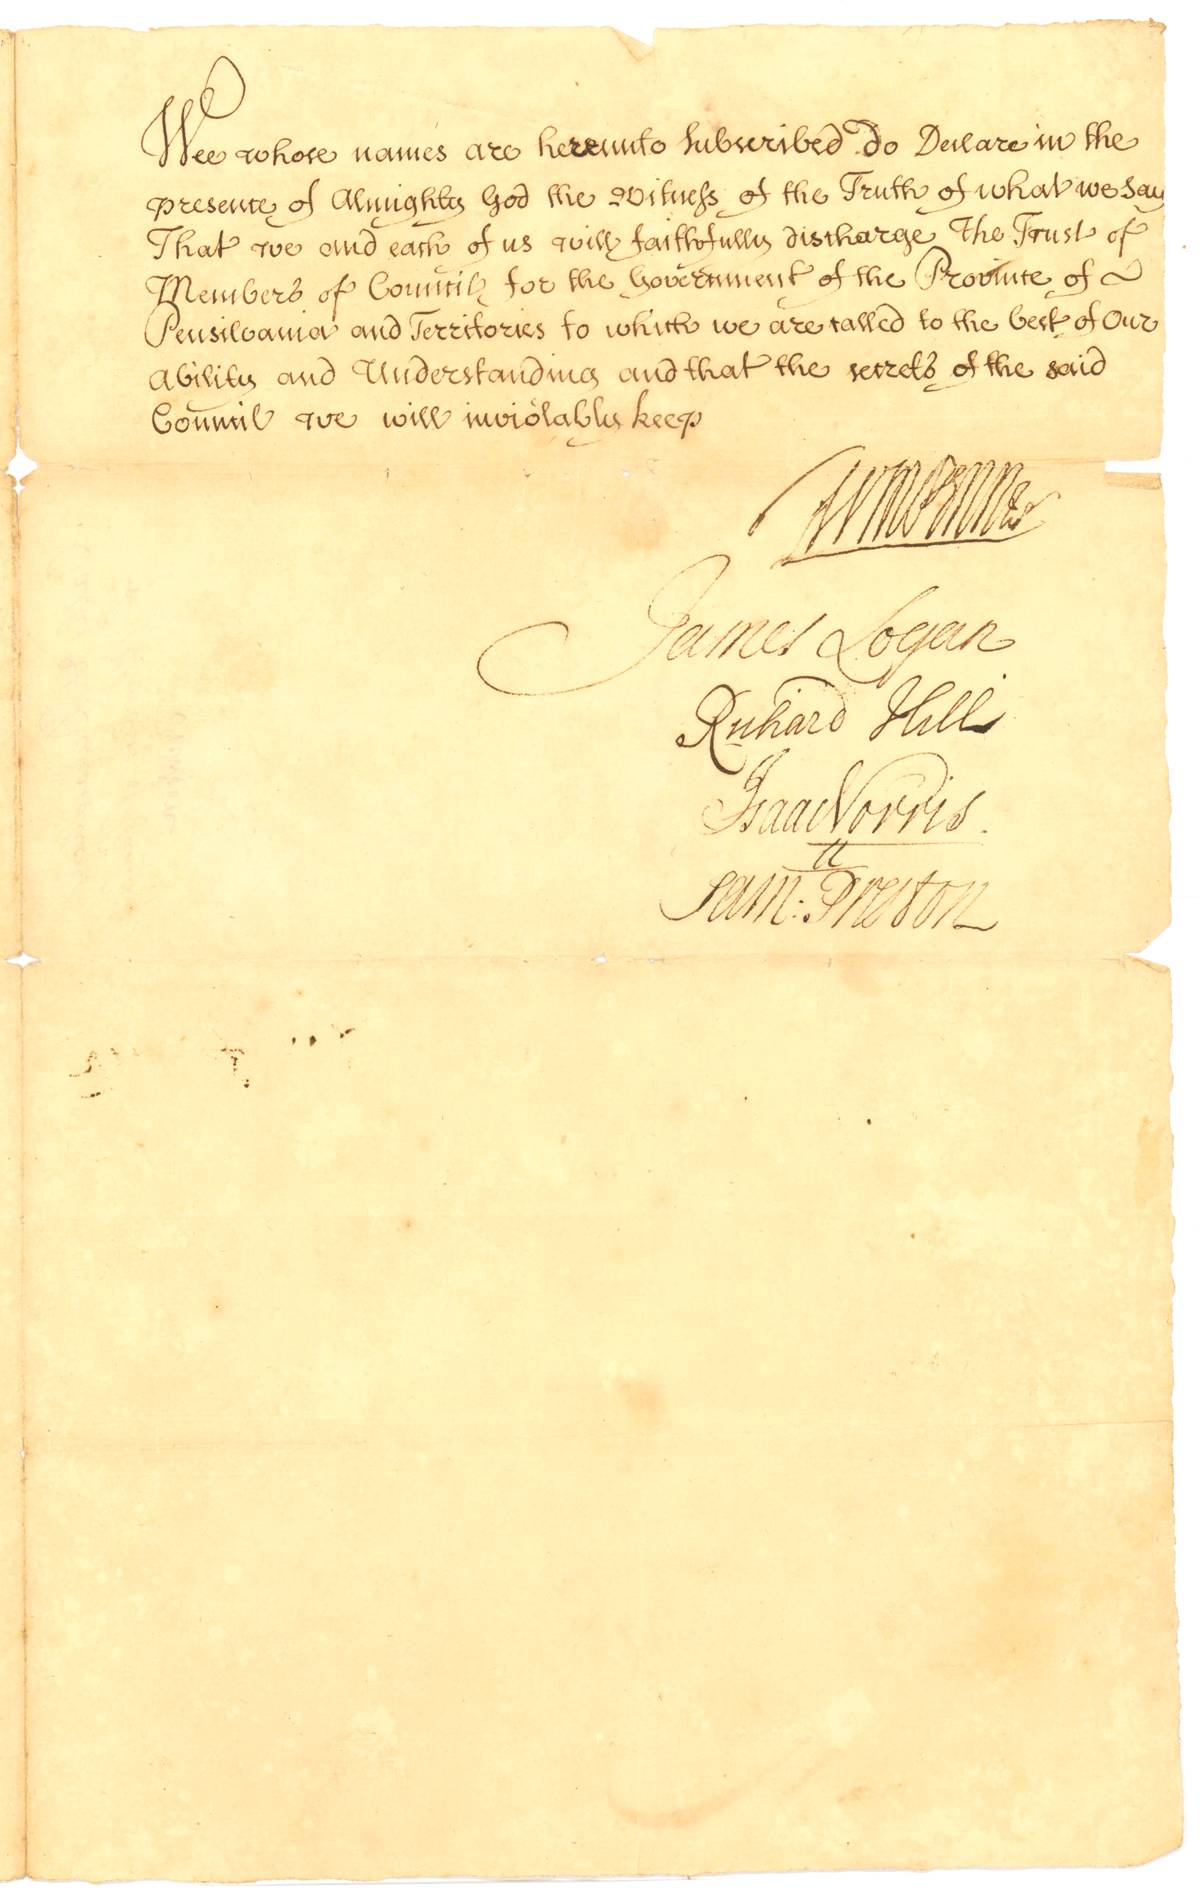 Wee whose names are hereunto subscribed do Declare in the
presence of Almighty God the Witness of the Truth of what we Say
That we and each of us will faithfully discharge The Trust of
Members of Council for the Government of the Province of
Pensilvania and Territories to which we are called to the best of Our
Ability and Understanding and that the secrets of the said
Council we will inviolably keep
James Logan
Richard Hill
Isaac Norris
Samll: Preston